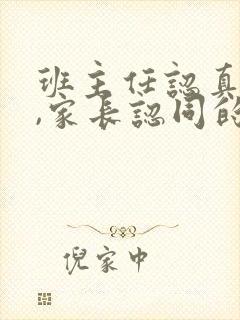 班主任認真
,家長認同的
倪家中